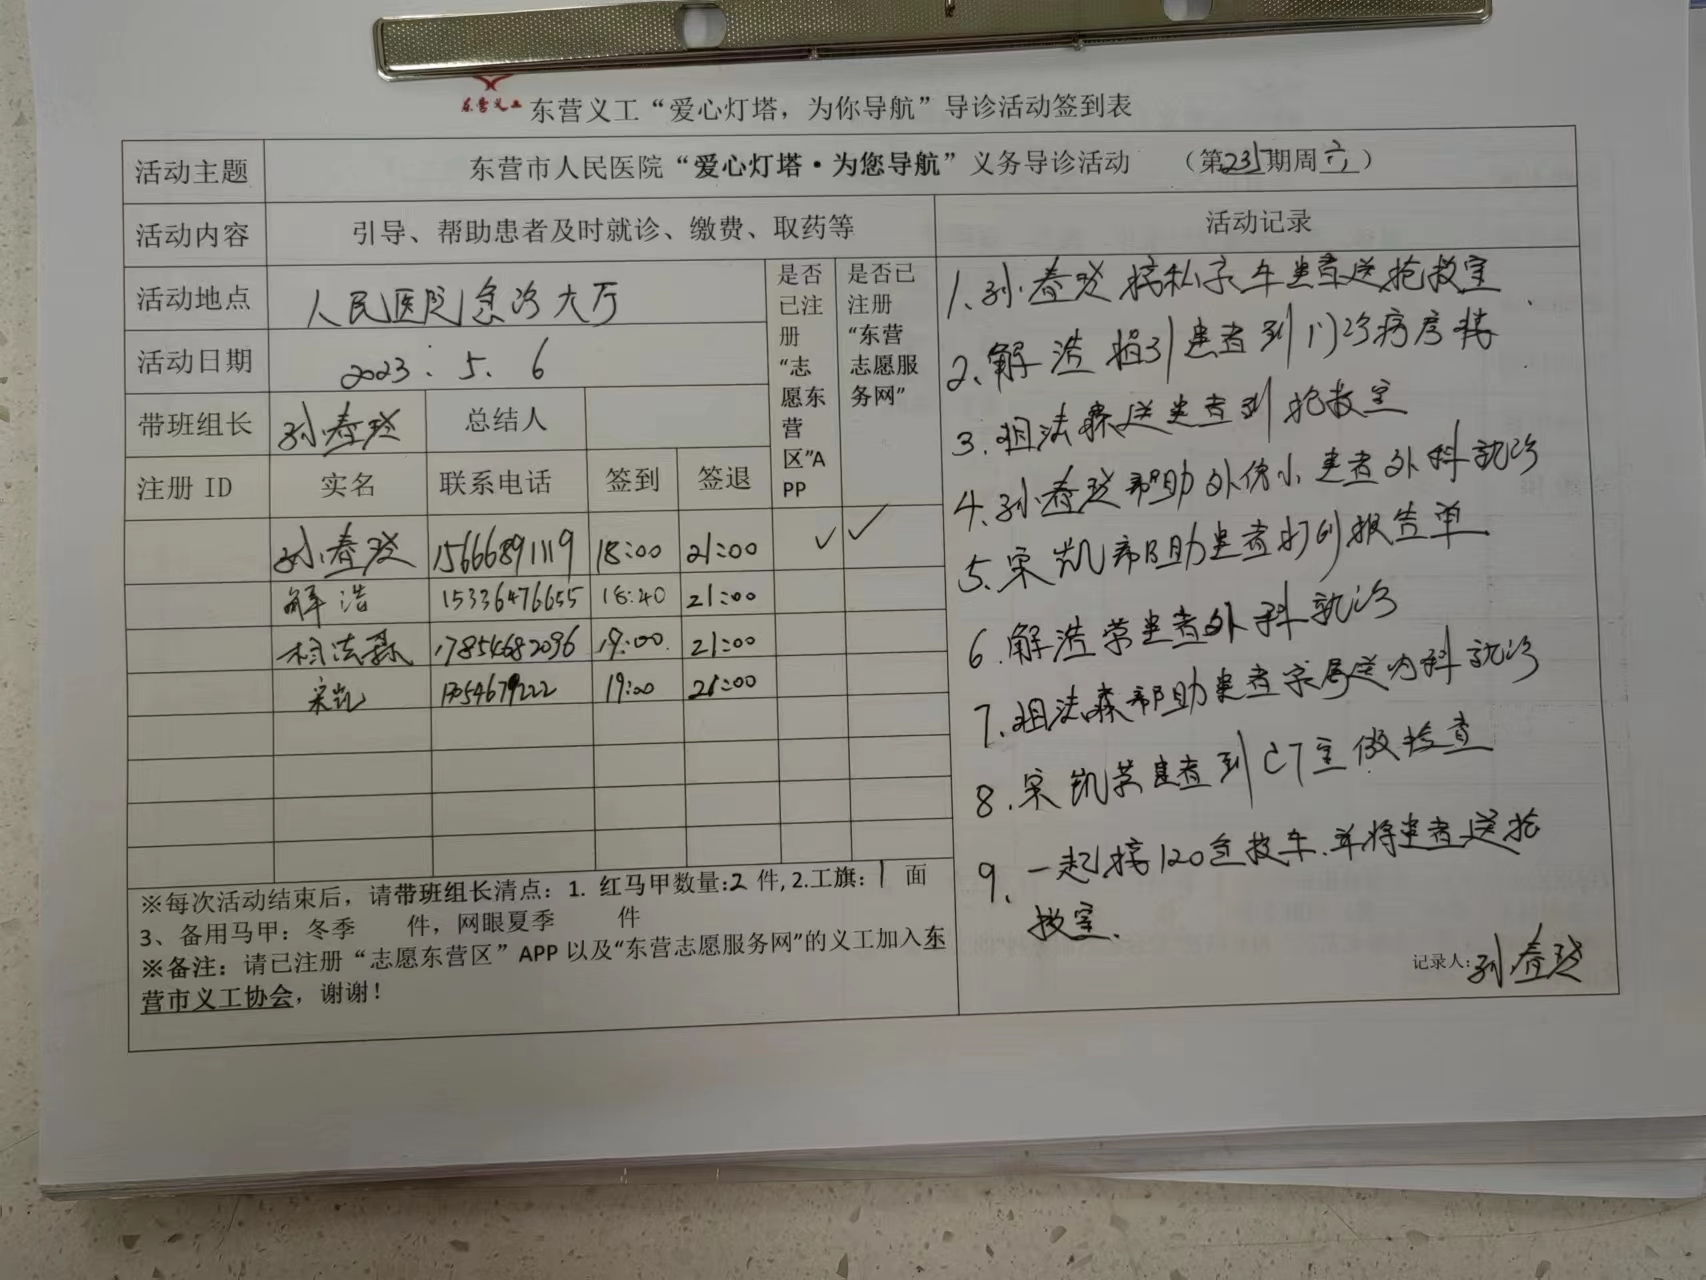 东营义工 东营义工“爱心灯塔，为你导航”导诊活动签到表
活动主题 东营市人民医院“爱心灯塔·为您导航”义务导诊活动 （第235期周六）
活动内容 引导、帮助患者及时就诊、缴费、取药等 活动记录
活动地点 人民医院急诊大厅
活动日期 2023.5.6
是否已注册“志愿东营区”APP
是否已注册“东营志愿服务网”
带班组长 孙春 总结人
注册 ID 实名 联系电话 签到 签退
孙春 15666891119 18:00 21:00 ✓ ✓
解浩 15336476655 18:40 21:00
法森 17854682096 19:00 21:00
宋凯 21:00 19:00
1.孙春 接私家车患者送抢救室
2.解浩指引患者到门诊病房楼
3.法森送患者到抢救室
4.孙春 帮助外伤小患者外科就诊
5.宋凯帮助患者打印报告单
6.解浩带患者外科就诊
7.法森帮助患者家属送内科就诊
8.宋凯带患者到CT室做检查
9.一起接120急救车.并将患者送抢
救室.
记录人:孙春
※每次活动结束后，请带班组长清点：1. 红马甲数量:2 件, 2.工旗：1 面
3、备用马甲：冬季 件，网眼夏季 件
※备注：请已注册“志愿东营区”APP 以及“东营志愿服务网”的义工加入东
营市义工协会，谢谢！